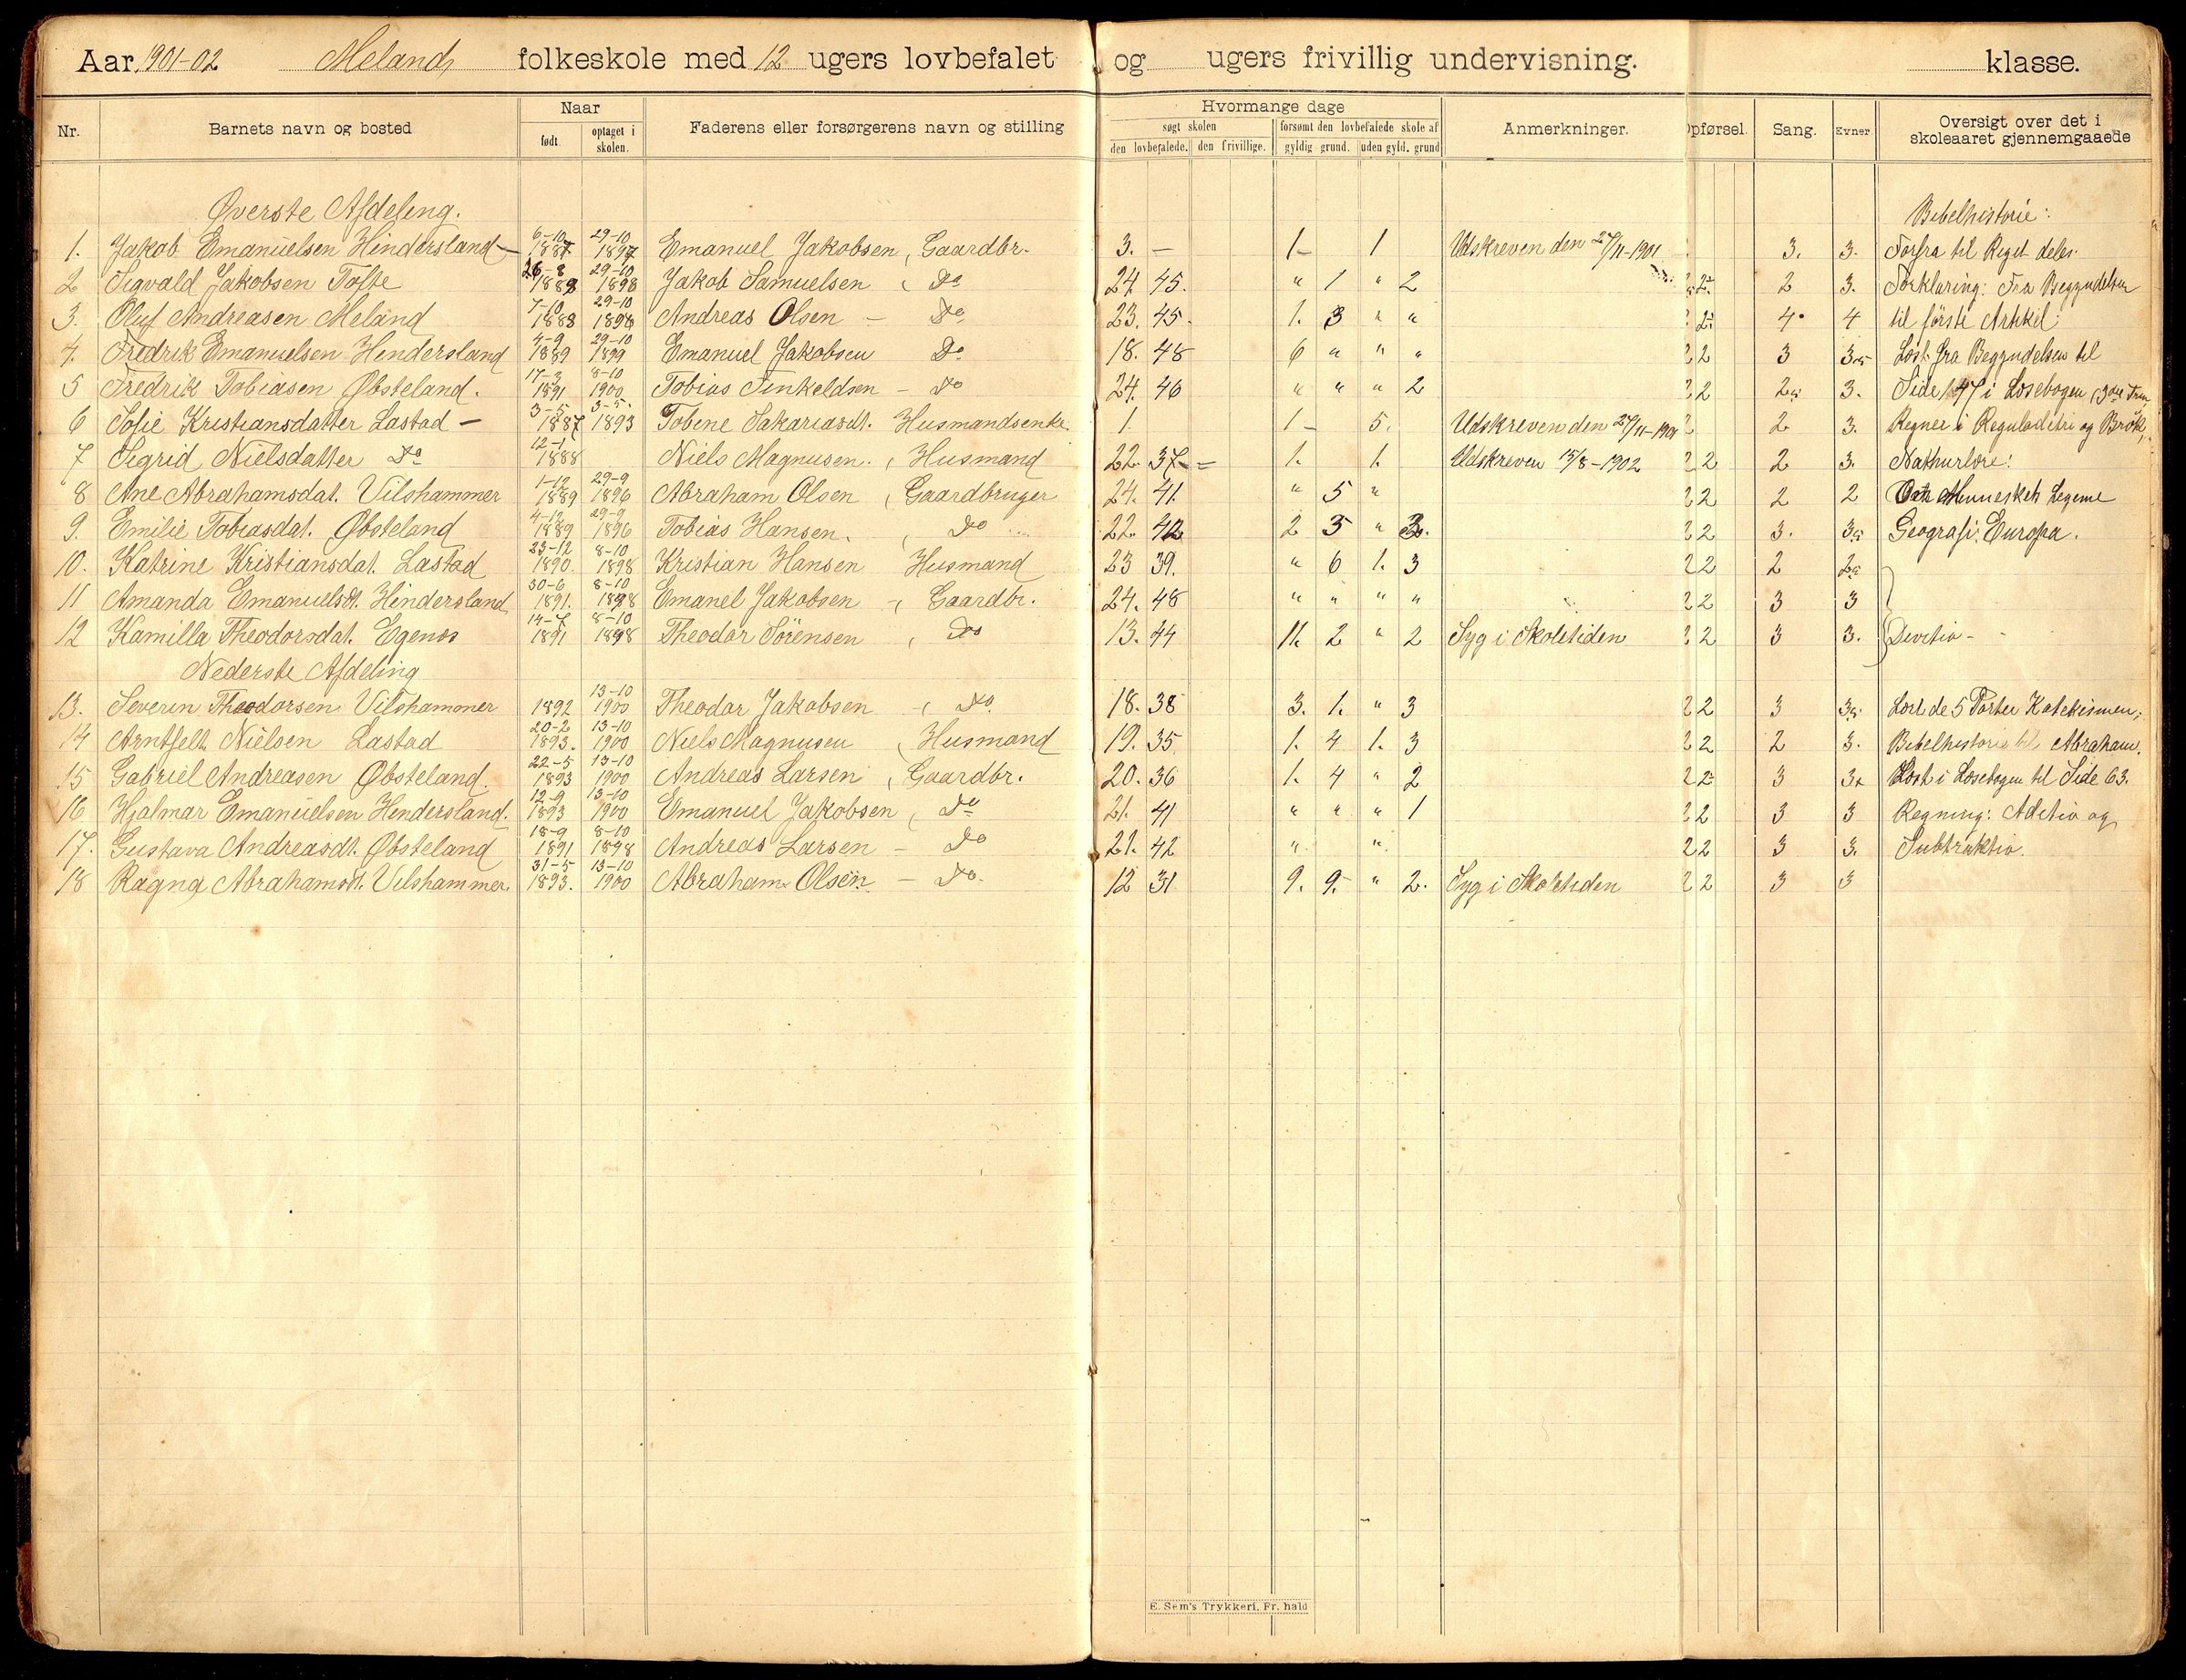 Aar 1901-02 Meland folkeskole med 12 ugers lovbefalet og ugers frivillig undervisning. klasse.
Nr. Barnets navn og bosted Naar født optaget i skolen. Faderens eller forsørgerens navn og stilling Hvormange dage søgt skolen den lovbefalede. den frivillige. forsømt den lovbefalede skole af gyldig grund. uden gyld. grund Anmerkninger. Opførsel. Sang. Evner Oversigt over det i skoleaaret gjennemgaaede
Øverste Afdeling. Bibelhistorie:
1. Jakob Emanuelsen Hindersland 6-10 1887 29-10 1897 Emanuel Jakobsen, Gaardbr. 3. — 1- 1 Udskreven den 27/11-1901 3. 3. Forfra til Riget deles.
2 Sigvald Jakobsen Tofte 26-8 1888 29-10 1898 Jakob Samuelsen, Do 24. 45. " 1 " 2 2 2 3. Forklaring: Fra Begyndelsen
3. Oluf Andreasen Meland 7-10 1888 29-10 1898 Andreas Olsen — Do 23. 45. 1. 3 " " 2 4. 4 til förste Artikel:
4. Fredrik Emanuelsen Hendersland 4-9 1889 29-10 1899 Emanuel Jakobsen Do 18. 48 6 " " " 2 2 3 3.5 Læst fra Begyndelsen til
5 Fredrik Tobiasen Øbsteland. 17-3 1891 8-10 1900 Tobias Tenkeldsen — Do 24. 46 " " " 2 2 2 2.5 3. Side 147 i Læsebogen
6 Sofie Kristiansdatter Lastad — 3-5 1887 3-5. 1893 Tobine Sakariasdt. Husmandsenke 1. 1- 5. Udskreven den 27/11-1901 2 2 3. Regnet i Reguladetri og Brök,
7 Sigrid Nielsdatter Do 12-1 1888 Niels Magnusen., Husmand 22. 37 1. 1. Udskreven 15/8-1902 2 2 2 3. Nathurlære:
8 Ane Abrahamsdat. Vilshammer 1-12 1889 29-9 1896 Abraham Olsen, Gaardbruger 24. 41. " 5 " 2 2 2 2 Om Menneskets Legeme
9. Emilie Tobiasdat. Øbsteland 4-12 1889 29-9 1896 Tobias Hansen., Do 22. 42 2 3 " 3. 2 2 3. 3.5 Geografi: Europa.
10. Katrine Kristiansdat. Lastad 23-12 1890 8-10 1898 Kristian Hansen Husmand 23 39. " 6 1. 3 2 2 2 2.5
11 Amanda Emanuelsdt. Hindersland 30-6 1891. 8-10 1898 Emanel Jakobsen —, Gaardbr. 24. 48 " " " " 2 2 3 3
12 Kamilla Theodorsdat. Egenes 14-7 1891 8-10 1898 Theodor Sörensen, Do 13. 44 11. 2 " 2 Syg i Skoletiden 2 2 3 3. Divitio -
Nederste Afdeling
13. Severin Theodorsen Vilshammer 1892 13-10 1900 Theodor Jakobsen —, Do. 18. 38 3. 1. " 3 2 2 3 3.5 Læst de 5 Parter Katekismen,
14 Arntfelt Nielsen Lastad 20-2 1893. 13-10 1900 Niels Magnusen, Husmand 19. 35 1. 4 1. 3 2 2 2 3. Bibelhistorie til Abraham.
15 Gabriel Andreasen Øbsteland. 22-5 1893 13-10 1900 Andreas Larsen, Gaardbr. 20. 36 1. 4 " 2 2 2 3 3. Læst i Læsebogen til Side 63.
16 Hjalmar Emanuelsen Hendersland. 12-9 1893 13-10 1900 Emanuel Jakobsen, Do 21. 41 " " " 1 2 2 3 3 Regning: Aditio og
17. Gustava Andreasdt. Øbsteland 18-9 1891 8-10 1898 Andreas Larsen — Do 21. 42 " " 2 2 3 3. Subtraktio.
18 Ragna Abrahamsdt. Vilshammer. 31-5 1893. 13-10 1900 Abraham Olsen — Do. 12 31 9. 9. " 2. Syg i Skoletiden 2 2 3 3
E. Sem's Trykkeri, Fr. hald